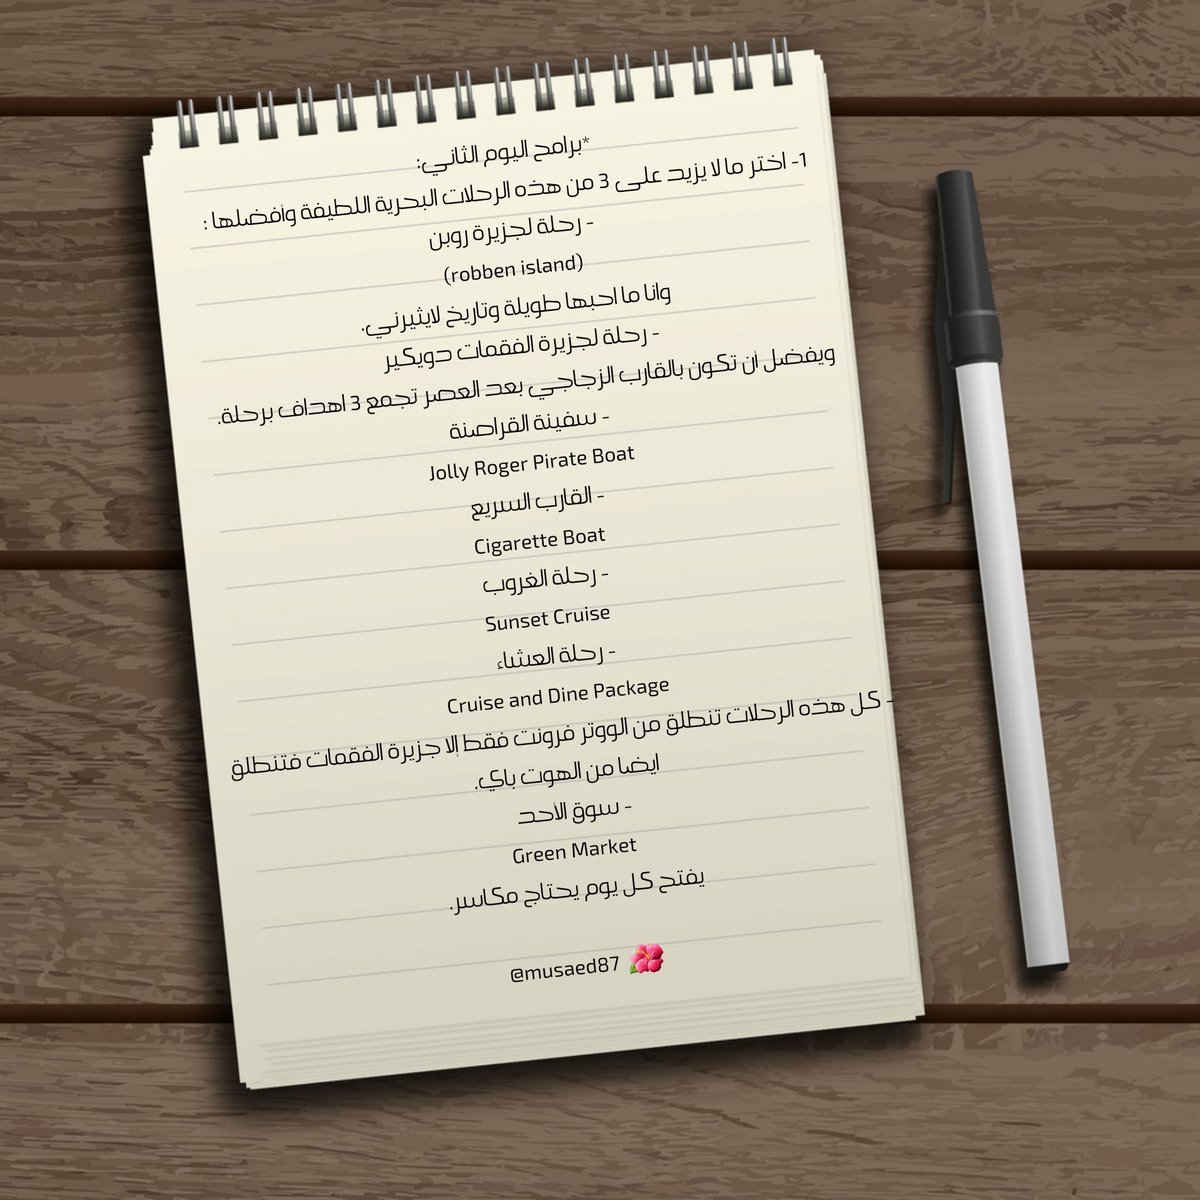 *برامج اليوم الثاني:
1- اختر ما لا يزيد على 3 من هذه الرحلات البحرية اللطيفة وأفضلها :
- رحلة لجزيرة روبن
(robben island)
وانا ما احبها طويلة وتاريخ لايثيرني.
- رحلة لجزيرة الفقمات دويكير
ويفضل ان تكون بالقارب الزجاجي بعد العصر تجمع 3 اهداف برحلة.
- سفينة القراصنة
Jolly Roger Pirate Boat
- القارب السريع
Cigarette Boat
- رحلة الغروب
Sunset Cruise
- رحلة العشاء
Cruise and Dine Package
- كل هذه الرحلات تنطلق من الووتر فرونت فقط إلا جزيرة الفقمات فتنطلق
ايضا من الهوت باي.
- سوق الأحد
Green Market
يفتح كل يوم يحتاج مكاسر.
@musaed87 🌺